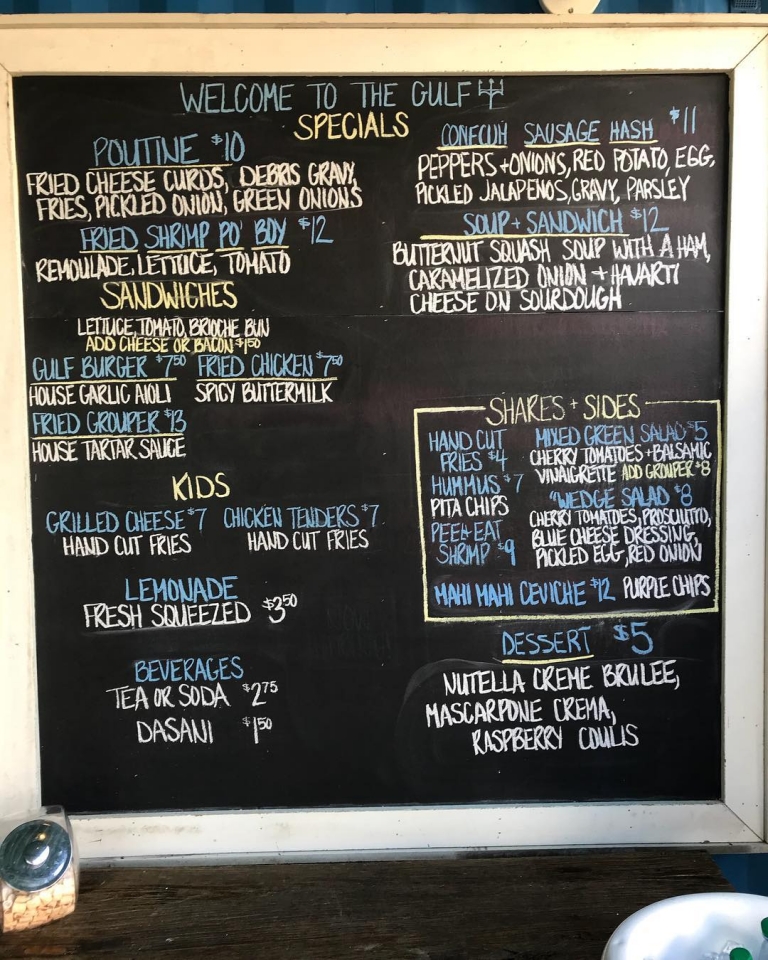 WELCOME TO THE GULF
SPECIALS
POUTINE $10
FRIED CHEESE CURDS, DEBRIS GRAVY,
FRIES, PICKLED ONION, GREEN ONIONS
FRIED SHRIMP PO' BOY $12
REMOULADE, LETTUCE, TOMATO
CONECUH SAUSAGE HASH $11
PEPPERS + ONIONS, RED POTATO, EGG,
PICKLED JALAPENOS, GRAVY, PARSLEY
SOUP + SANDWICH $12
BUTTERNUT SQUASH SOUP WITH A HAM,
CARAMELIZED ONION + HAVARTI
CHEESE ON SOURDOUGH
SANDWICHES
LETTUCE, TOMATO, BRIOCHE BUN
ADD CHEESE OR BACON $1.50
GULF BURGER $7.50 FRIED CHICKEN $7.50
HOUSE GARLIC AIOLI SPICY BUTTERMILK
FRIED GROUPER $13
HOUSE TARTAR SAUCE
KIDS
GRILLED CHEESE $7 CHICKEN TENDERS $7
HAND CUT FRIES HAND CUT FRIES
LEMONADE
FRESH SQUEEZED $3.50
BEVERAGES
TEA OR SODA $2.75
DASANI $1.50
SHARES + SIDES
HAND CUT
FRIES $4
HUMMUS $7
PITA CHIPS
PEEL+EAT
SHRIMP $9
MIXED GREEN SALAD $5
CHERRY TOMATOES + BALSAMIC
VINAIGRETTE ADD GROUPER $8
"WEDGE SALAD $8
CHERRY TOMATOES, PROSCIUTTO,
BLUE CHEESE DRESSING,
PICKLED EGG, RED ONION
MAHI MAHI CEVICHE $12 PURPLE CHIPS
DESSERT $5
NUTELLA CREME BRULEE,
MASCARPONE CREMA,
RASPBERRY COULIS